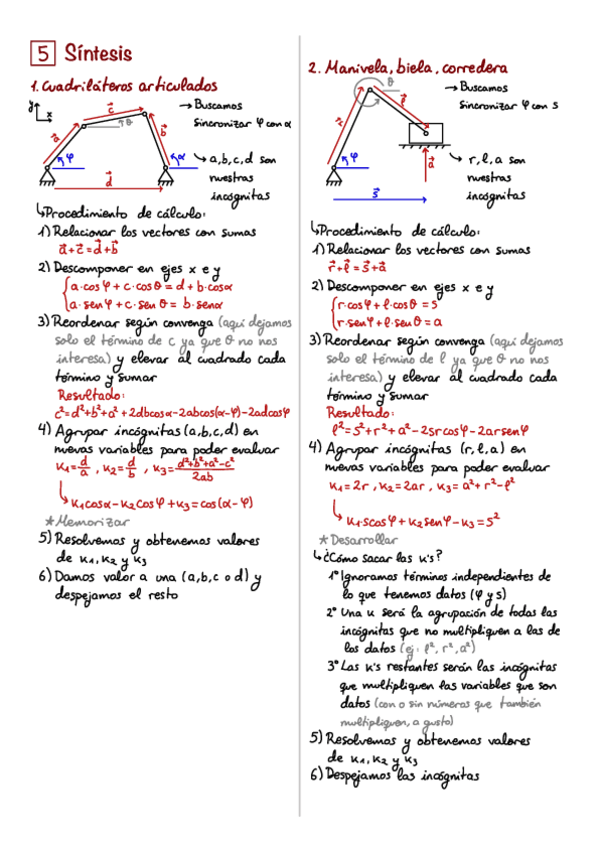 5 Síntesis
1. Cuadriláteros articulados
y
x
a
c
b
d
θ
φ
α
→ Buscamos
sincronizar φ con α
↳ a,b,c,d son
nuestras
incógnitas
↳Procedimiento de cálculo:
1) Relacionar los vectores con sumas
a⃗+c⃗=d⃗+b⃗
2) Descomponer en ejes x e y
{a·cosφ + c·cosθ = d + b·cosα
a·senφ + c·senθ = b·senα
3) Reordenar según convenga (aquí dejamos
solo el término de c ya que θ no nos
interesa) y elevar al cuadrado cada
término y sumar
Resultado:
c²=d²+b²+a²+2dbcosα-2abcos(α-φ)-2adcosφ
4) Agrupar incógnitas (a,b,c,d) en
nuevas variables para poder evaluar
K1=d/a , K2=d/b , K3=d²+b²+a²-c²/2ab
↳ K1cosα-K2cosφ+K3=cos(α-φ)
*Memorizar
5) Resolvemos y obtenemos valores
de K1,K2 y K3
6) Damos valor a una (a,b,c o d) y
despejamos el resto
2. Manivela, biela, corredera
θ
r
l
φ
a
s
→ Buscamos
sincronizar φ con s
↳ r,l,a son
nuestras
incógnitas
↳Procedimiento de cálculo:
1) Relacionar los vectores con sumas
r⃗+l⃗=s⃗+a⃗
2) Descomponer en ejes x e y
{r·cosφ+l·cosθ = s
r·senφ+l·senθ = a
3) Reordenar según convenga (aquí dejamos
solo el término de l ya que θ no nos
interesa) y elevar al cuadrado cada
término y sumar
Resultado:
l²=s²+r²+a²-2srcosφ-2arsenφ
4) Agrupar incógnitas (r,l,a) en
nuevas variables para poder evaluar
K1=2r , K2=2ar , K3=a²+r²-l²
↳ K1scosφ+K2senφ-K3=s²
*Desarrollar
↳¿Cómo sacar las K's?
1º Ignoramos términos independientes de
lo que tenemos datos (φ y s)
2º Una K será la agrupación de todas las
incógnitas que no multipliquen a las de
los datos (ej: l², r², a²)
3º Las K's restantes serán las incógnitas
que multipliquen las variables que son
datos (con o sin números que también
multipliquen, a gusto)
5) Resolvemos y obtenemos valores
de K1,K2 y K3
6) Despejamos las incógnitas